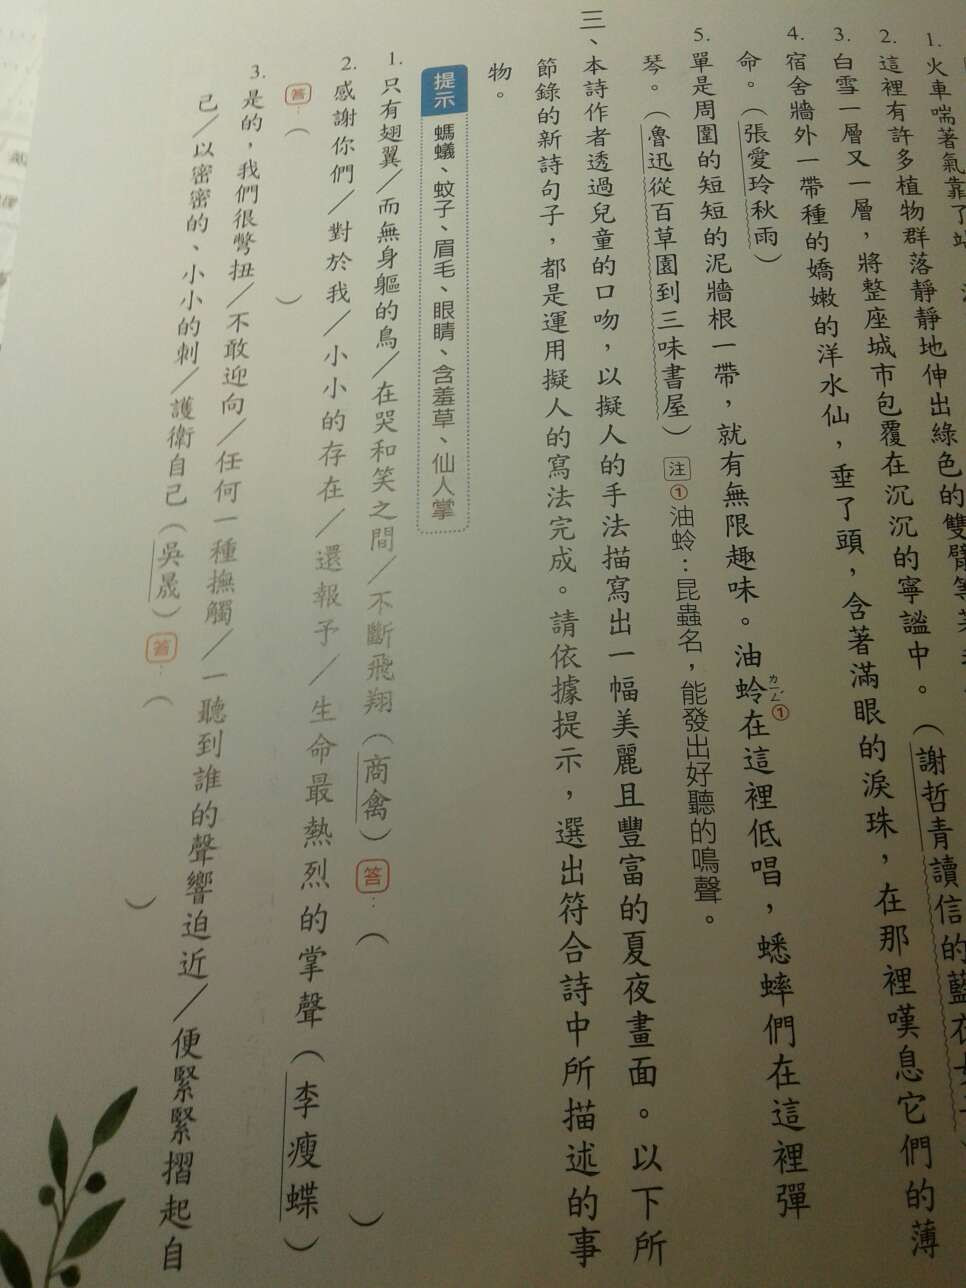 1. 火車喘著氣靠了站
2. 這裡有許多植物群落靜靜地伸出綠色的雙臂等
3. 白雪一層又一層，將整座城市包覆在沉沉的寧謐中。（謝哲青讀信的藍衣女子）
4. 宿舍牆外一帶種的嬌嫩的洋水仙，垂了頭，含著滿眼的淚珠，在那裡嘆息它們的薄
命。（張愛玲秋雨）
5. 單是周圍的短短的泥牆根一帶，就有無限趣味。油蛉ㄌㄧㄥˊ①在這裡低唱，蟋蟀們在這裡彈
琴。（魯迅從百草園到三味書屋）注①油蛉：昆蟲名，能發出好聽的鳴聲。
三、本詩作者透過兒童的口吻，以擬人的手法描寫出一幅美麗且豐富的夏夜畫面。以下所
節錄的新詩句子，都是運用擬人的寫法完成。請依據提示，選出符合詩中所描述的事
物。
提示 螞蟻、蚊子、眉毛、眼睛、含羞草、仙人掌
1. 只有翅翼／而無身軀的鳥／在哭和笑之間／不斷飛翔（商禽）答：（ ）
2. 感謝你們／對於我／小小的存在／還報予／生命最熱烈的掌聲（李瘦蝶）
答：（ ）
3. 是的，我們很彆扭／不敢迎向／任何一種撫觸／一聽到誰的聲響迫近／便緊緊摺起自
己／以密密的、小小的刺／護衛自己（吳晟）答：（ ）